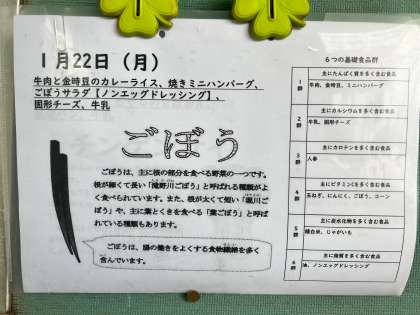 1月22日（月）
牛肉と金時豆のカレーライス、焼きミニハンバーグ、
ごぼうサラダ【ノンエッグドレッシング】、
固形チーズ、牛乳
ごぼう
ごぼうは、主に根の部分を食べる野菜の一つです。
根が細くて長い「滝野川ごぼう」と呼ばれる種類がよ
く食べられています。また、根が太くて短い「堀川ご
ぼう」や、主に葉とくきを食べる「葉ごぼう」と呼ば
れている種類もあります。
ごぼうは、腸の働きをよくする食物繊維を多く
含んでいます。
6つの基礎食品群
1群
主にたんぱく質を多く含む食品
牛肉、金時豆、ミニハンバーグ
2群
主にカルシウムを多く含む食品
牛乳、固形チーズ
3群
主にカロテンを多く含む食品
人参
4群
主にビタミンCを多く含む食品
玉ねぎ、にんにく、ごぼう、コーン
5群
主に炭水化物を多く含む食品
精白米、じゃがいも
6群
主に脂質を多く含む食品
油、ノンエッグドレッシング